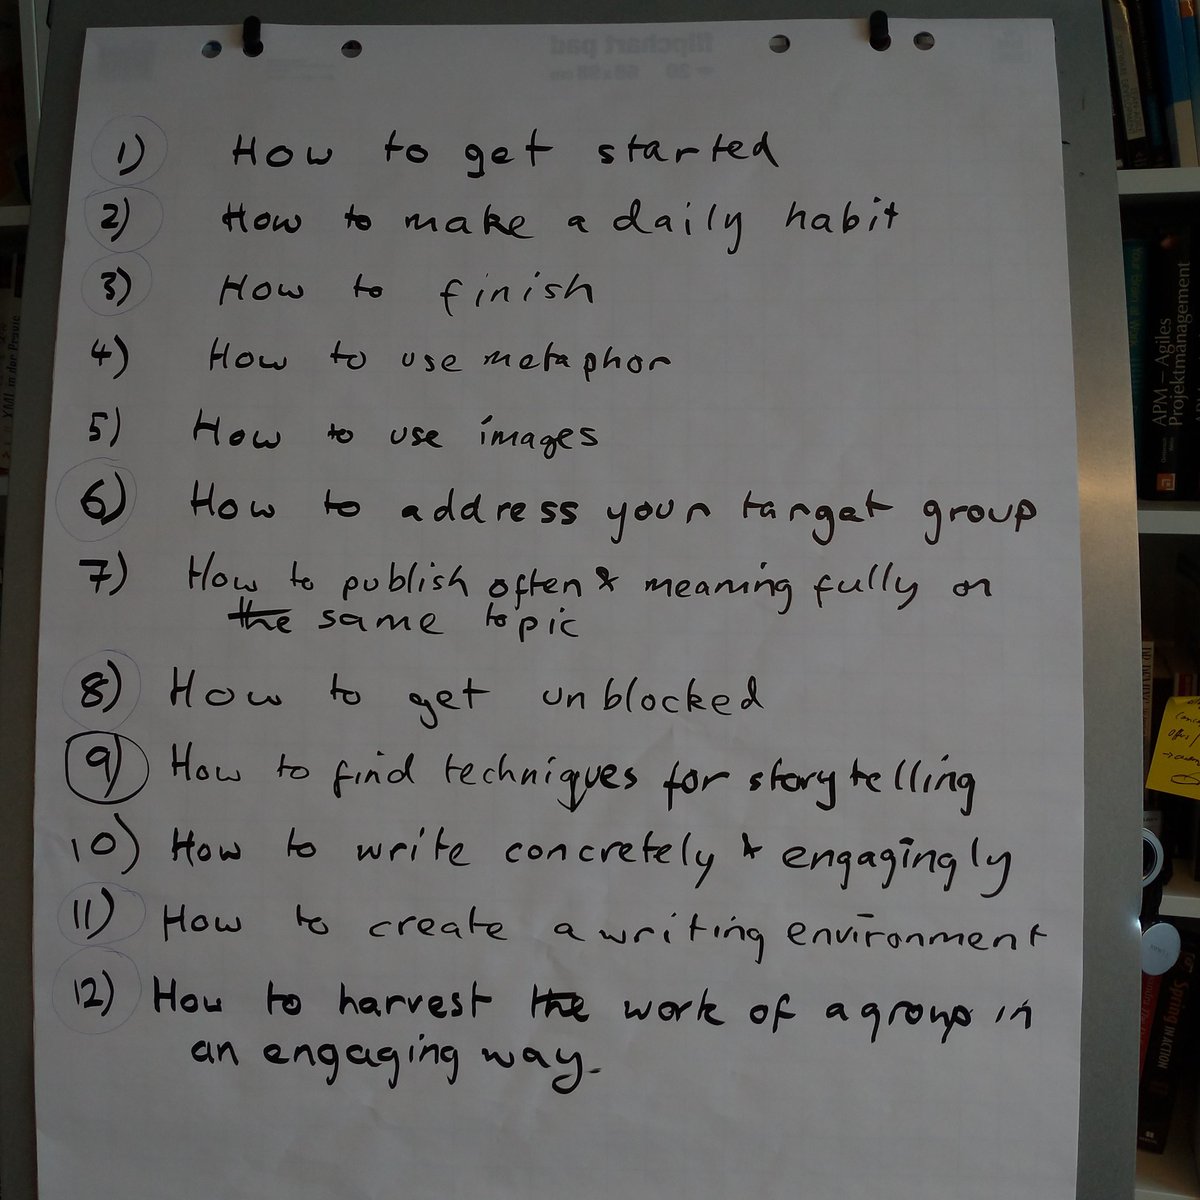 flipchart pad
1) How to get started
2) How to make a daily habit
3) How to finish
4) How to use metaphor
5) How to use images
6) How to address your target group
7) How to publish often & meaningfully on
the same topic
8) How to get unblocked
9) How to find techniques for storytelling
10) How to write concretely & engagingly
11) How to create a writing environment
12) How to harvest the work of a group in
an engaging way.
APM – Agiles
Projektmanagement
XML in der Praxis
Spring IN ACTION